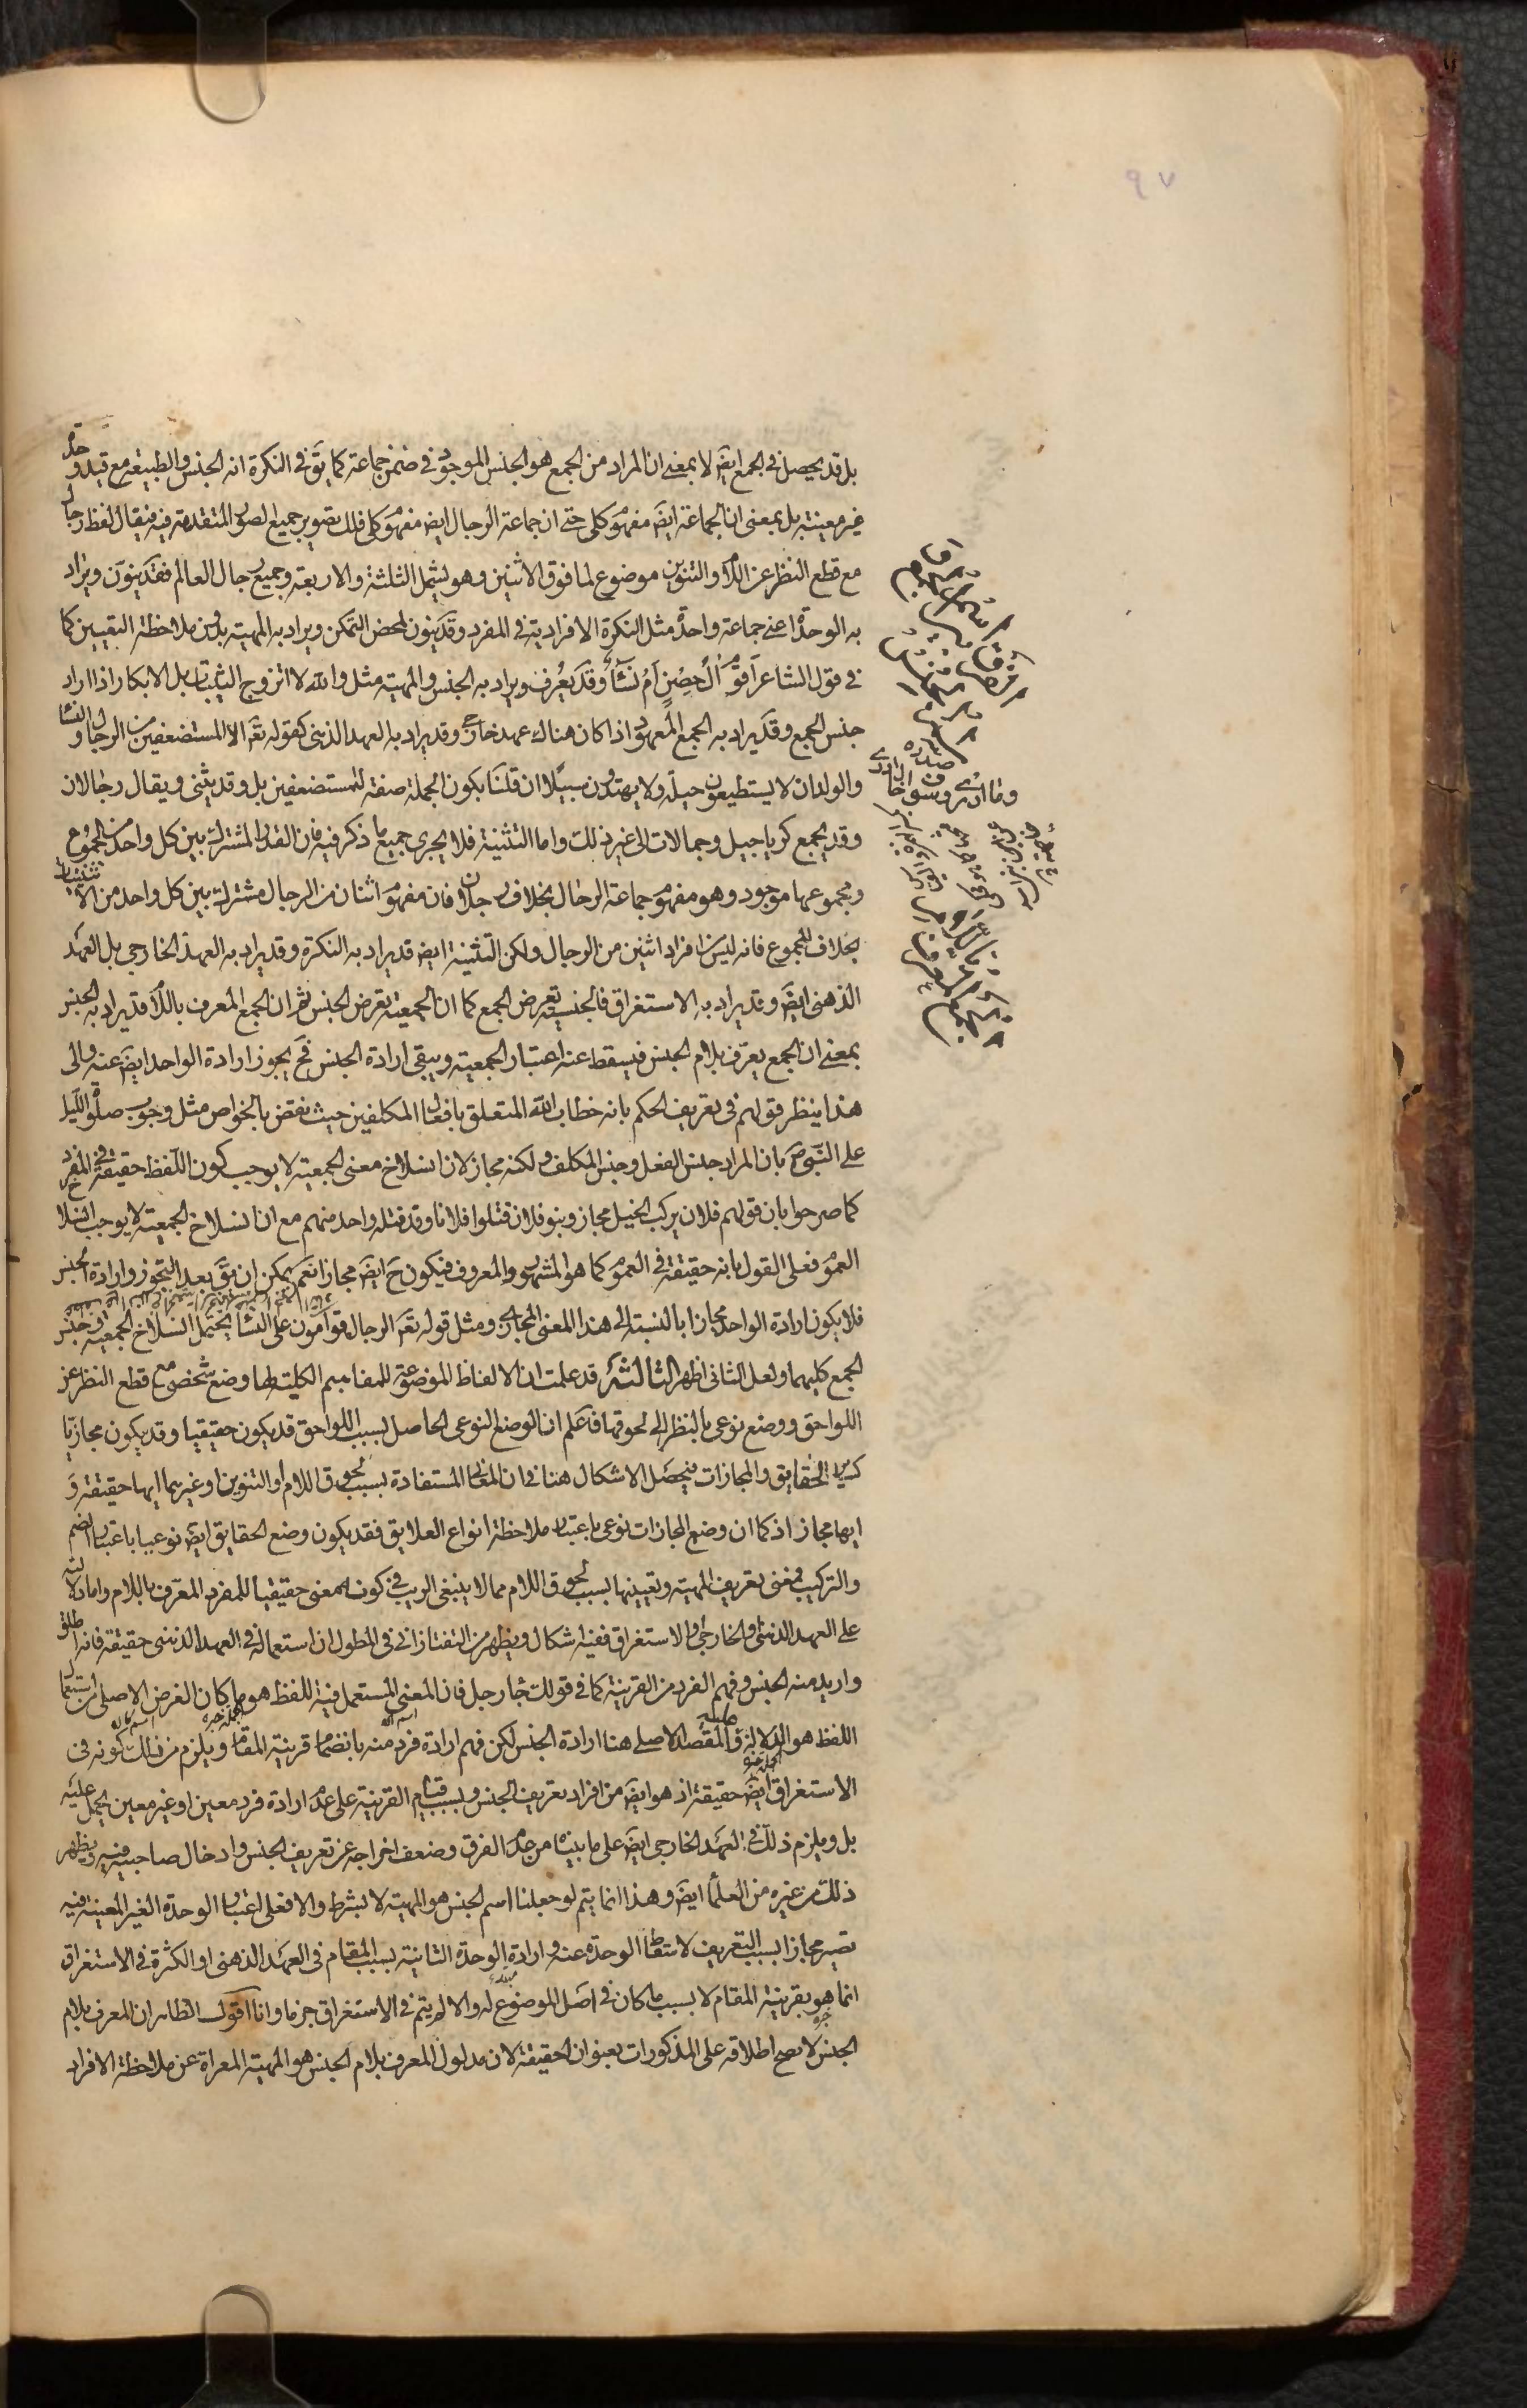 ٩٧
بل قد يحصل في الجمع ايضَ لا بمعنى ان المراد من الجمع هو الجنس الموجود في ضمن جماعة كما يقَ في النكرة انه الجنس والطبيعة مع قيد وحدة
غير معينة بل بمعنى ان الجماعة ايضَ مفهوم كلي حتى ان جماعة الرجال ايضَ مفهوم كلي فلك تصوير جميع الصور المتقدمة فيه فيقال لفظ رجال
مع قطع النظر عن اللام والتنوين موضوع لما فوق الاثنين وهو يشمل الثلثة والاربعة وجميع رجال العالم فقد ينون ويراد
به الوحدة اعنى جماعة واحدة مثل النكرة الافرادية في المفرد وقد ينون لمحض التمكن ويراد به المهية بدون ملاحظة التعيين كما
في قول الشاعر اَقومٌ الُ حِصنٍ اَم نسَاءُ وقد يعرف ويراد به الجنس والمهية مثل والله لا اتزوج الثيبات بل الابكار اذا اراد
جنس الجمع وقد يراد به الجمع المعهود اذا كان هناك عهد خارجي وقد يراد به العهد الذهني كقوله تعَ الا المستضعفين من الرجال والنساء
والولدان لا يستطيعون حيلة ولا يهتدون سبيلا ان قلنا بكون الجملة صفة للمستضعفين بل وقد يثنى ويقال رجالان
وقد يجمع كرياجيل وجمالات الى غير ذلك واما التثنية فلا يجرى جميع ما ذكر فيه فان القدر المشترك بين كل واحد من الجموع
ومجموعها موجود وهو مفهوم جماعة الرجال بخلاف رجلان فان مفهوم اثنان من الرجال مشترك بين كل واحد من الاثنينات
بخلاف المجموع فانه ليس من افراد اثنين من الرجال ولكن التثنية ايضَ قد يراد به النكرة وقد يراد به العهد الخارجي بل العهد
الذهني ايضَ وقد يراد به الاستغراق فالجنسية تعرض الجمع كما ان الجمعية تعرض الجنس ثم ان الجمع المعرف باللام قد يراد به الجنس
بمعنى ان الجمع يعرّف بلام الجنس فيسقط عنه اعتبار الجمعية ويبقى ارادة الجنس فحَ يجوز ارادة الواحد ايضَ عنه والى
هذا ينظر قولهم في تعريف الحكم بانه خطاب الله المتعلق بافعال المكلفين حيث نقض بالخواص مثل وجوب صلوة الليل
على النبي ص بان المراد جنس الفعل وجنس المكلف ولكنه مجاز لان انسلاخ معنى الجمعية لا يوجب كون اللفظ حقيقة في المفرد
كما صرحوا بان قولهم فلان يركب الخيل مجاز وبنو فلان قتلوا فلانا وقد قتله واحد منهم مع ان انسلاخ الجمعية لا يوجب انسلاخ
العموم فعلى القول بانه حقيقة في العموم كما هو المشهور والمعروف فيكون حَ ايضَ مجازا نعم يمكن ان يقَ بعد التجوز وارادة الجنس
فلا يكون ارادة الواحد مجازا بالنسبة الى هذا المعنى المجازى ومثل قوله تعَ الرجال قوامون على النساء يحتمل انسلاخ الجمعية وجنس
الجمع كليهما ولعل الثانى اظهر الثالثة قد علمت ان الالفاظ الموضوعة للمفاهيم الكلية لها وضع شخصى مع قطع النظر عن
اللواحق ووضع نوعى بالنظر الى لحوقها فاعلم ان الوضع النوعى الحاصل بسبب اللواحق قد يكون حقيقيا وقد يكون مجازيا
كساير الحقايق والمجازات فيحصل الاشكال هنا في ان المعانى المستفادة بسبب لحوق اللام او التنوين او غيرهما ايها حقيقة و
ايها مجاز اذ كما ان وضع المجازات نوعى باعتبار ملاحظة انواع العلايق فقد يكون وضع الحقايق ايضَ نوعيا باعتبار الضم
والتركيب فمعنى تعريف المهية وتعيينها بسبب لحوق اللام مما لا ينبغى الريب في كونه معنى حقيقيا للمفرد المعرّف باللام واما دلالته
على العهد الذهني والخارجي والاستغراق ففيه اشكال ويظهر من التفتازاني في المطول ان استعماله في العهد الذهني حقيقة فانه اطلق
واريد منه الجنس وفهم الفرد من القرينة كما في قولك جاء رجل فان المعنى المستعمل فيه اللفظ هو ما كان الغرض الاصلى من استعمال
اللفظ هو الدلالة عليه والمقصد الاصلى هنا ارادة الجنس لكن فهم ارادة فرد منه بانضمام قرينة المقام ويلزم من ذلك كونه في
الاستغراق ايضَ حقيقة اذ هو ايضَ من افراد تعريف الجنس وبسبب قيام القرينة على عدم ارادة فرد معين او غير معين يحمل عليه
بل ويلزم ذلك في العهد الخارجي ايضَ على ما بيناه من عدم الفرق وضعف اخراجه عن تعريف الجنس وادخال صاحبيه فيه ويظهر
ذلك من غيره من العلماء ايضَ وهذا انما يتم لو جعلنا اسم الجنس هو المهية لا بشرط والا فعلى اعتبار الوحدة الغير المعينة فيه
تصير مجازا بسبب التعريف لاسقاط الوحدة عنه وارادة الوحدة الثانية بسبب المقام في العهد الذهني او الكثرة في الاستغراق
انما هو بقرينة المقام لا بسبب ما كان في اصل الموضوع له والا لم يتم في الاستغراق جزما وانا اقول الظاهر ان المعرف بلام
الجنس لا يصح اطلاقه على المذكورات بعنوان الحقيقة لان مدلول المعرف بلام الجنس هو المهية المعراة عن ملاحظة الافراد
صدره
وما ادرى وسوف اخال ادرى